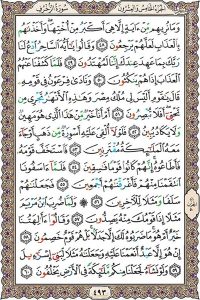 الجزء الخامس والعشرون سورة الزخرف
وَمَا نُرِيهِم مِّنْ ءَايَةٍ إِلَّا هِيَ أَكْبَرُ مِنْ أُخْتِهَا وَأَخَذْنَٰهُم
بِٱلْعَذَابِ لَعَلَّهُمْ يَرْجِعُونَ ٤٨ وَقَالُوا۟ يَٰٓأَيُّهَ ٱلسَّاحِرُ ٱدْعُ لَنَا
رَبَّكَ بِمَا عَهِدَ عِندَكَ إِنَّنَا لَمُهْتَدُونَ ٤٩ فَلَمَّا كَشَفْنَا عَنْهُمُ
ٱلْعَذَابَ إِذَا هُمْ يَنكُثُونَ ٥٠ وَنَادَىٰ فِرْعَوْنُ فِي قَوْمِهِۦ
قَالَ يَٰقَوْمِ أَلَيْسَ لِي مُلْكُ مِصْرَ وَهَٰذِهِ ٱلْأَنْهَٰرُ تَجْرِي مِن
تَحْتِيٓ أَفَلَا تُبْصِرُونَ ٥١ أَمْ أَنَا۠ خَيْرٌ مِّنْ هَٰذَا ٱلَّذِي هُوَ مَهِينٌ
وَلَا يَكَادُ يُبِينُ ٥٢ فَلَوْلَآ أُلْقِيَ عَلَيْهِ أَسْوِرَةٌ مِّن ذَهَبٍ أَوْ جَآءَ
مَعَهُ ٱلْمَلَٰٓئِكَةُ مُقْتَرِنِينَ ٥٣ فَٱسْتَخَفَّ قَوْمَهُۥ
فَأَطَاعُوهُ إِنَّهُمْ كَانُوا۟ قَوْمًا فَٰسِقِينَ ٥٤ فَلَمَّآ ءَاسَفُونَا
ٱنتَقَمْنَا مِنْهُمْ فَأَغْرَقْنَٰهُمْ أَجْمَعِينَ ٥٥ فَجَعَلْنَٰهُمْ
سَلَفًا وَمَثَلًا لِّلْءَاخِرِينَ ٥٦ ۞ وَلَمَّا ضُرِبَ ٱبْنُ مَرْيَمَ
مَثَلًا إِذَا قَوْمُكَ مِنْهُ يَصِدُّونَ ٥٧ وَقَالُوٓا۟ ءَأَٰلِهَتُنَا
خَيْرٌ أَمْ هُوَ مَا ضَرَبُوهُ لَكَ إِلَّا جَدَلًۢا بَلْ هُمْ قَوْمٌ خَصِمُونَ ٥٨
إِنْ هُوَ إِلَّا عَبْدٌ أَنْعَمْنَا عَلَيْهِ وَجَعَلْنَٰهُ مَثَلًا لِّبَنِيٓ إِسْرَٰٓءِيلَ ٥٩
وَلَوْ نَشَآءُ لَجَعَلْنَا مِنكُم مَّلَٰٓئِكَةً فِي ٱلْأَرْضِ يَخْلُفُونَ ٦٠
٤٩٣